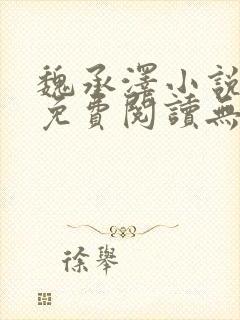 魏承澤小說
免費閱讀無
徐舉